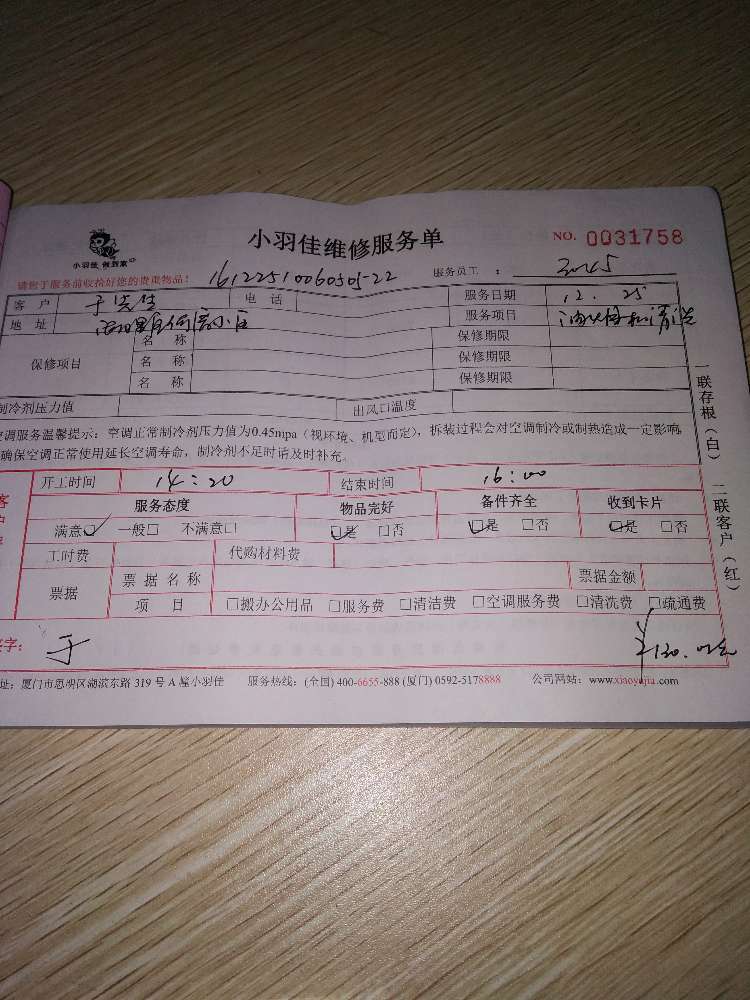 小羽佳 做到家
小羽佳维修服务单
NO. 0031758
请您于服务前收拾好您的贵重物品!
服务员工 :
客 户 于先生 电 话 服务日期 12. 25
地 址 服务项目 油烟机清洗
保修项目
名 称 保修期限
名 称 保修期限
名 称 保修期限
制冷剂压力值 出风口温度
空调服务温馨提示:空调正常制冷剂压力值为0.45mpa(视环境、机型而定),拆装过程会对空调制冷或制热造成一定影响
确保空调正常使用延长空调寿命,制冷剂不足时请及时补充。
开工时间 14:20 结束时间 16:00
服务态度 物品完好 备件齐全 收到卡片
满意☑ 一般□ 不满意□ ☑是 □否 ☑是 □否 ☑是 □否
工时费 代购材料费
票据 票据名称 票据金额
项 目 □搬办公用品 □服务费 □清洁费 □空调服务费 □清洗费 □疏通费
签字: 于
址:厦门市思明区湖滨东路 319 号 A 幢小羽佳 服务热线:(全国) 400-6655-888 (厦门) 0592-5178888 公司网站:www.xiaoyujia.com
一联存根(白) 二联客户(红)